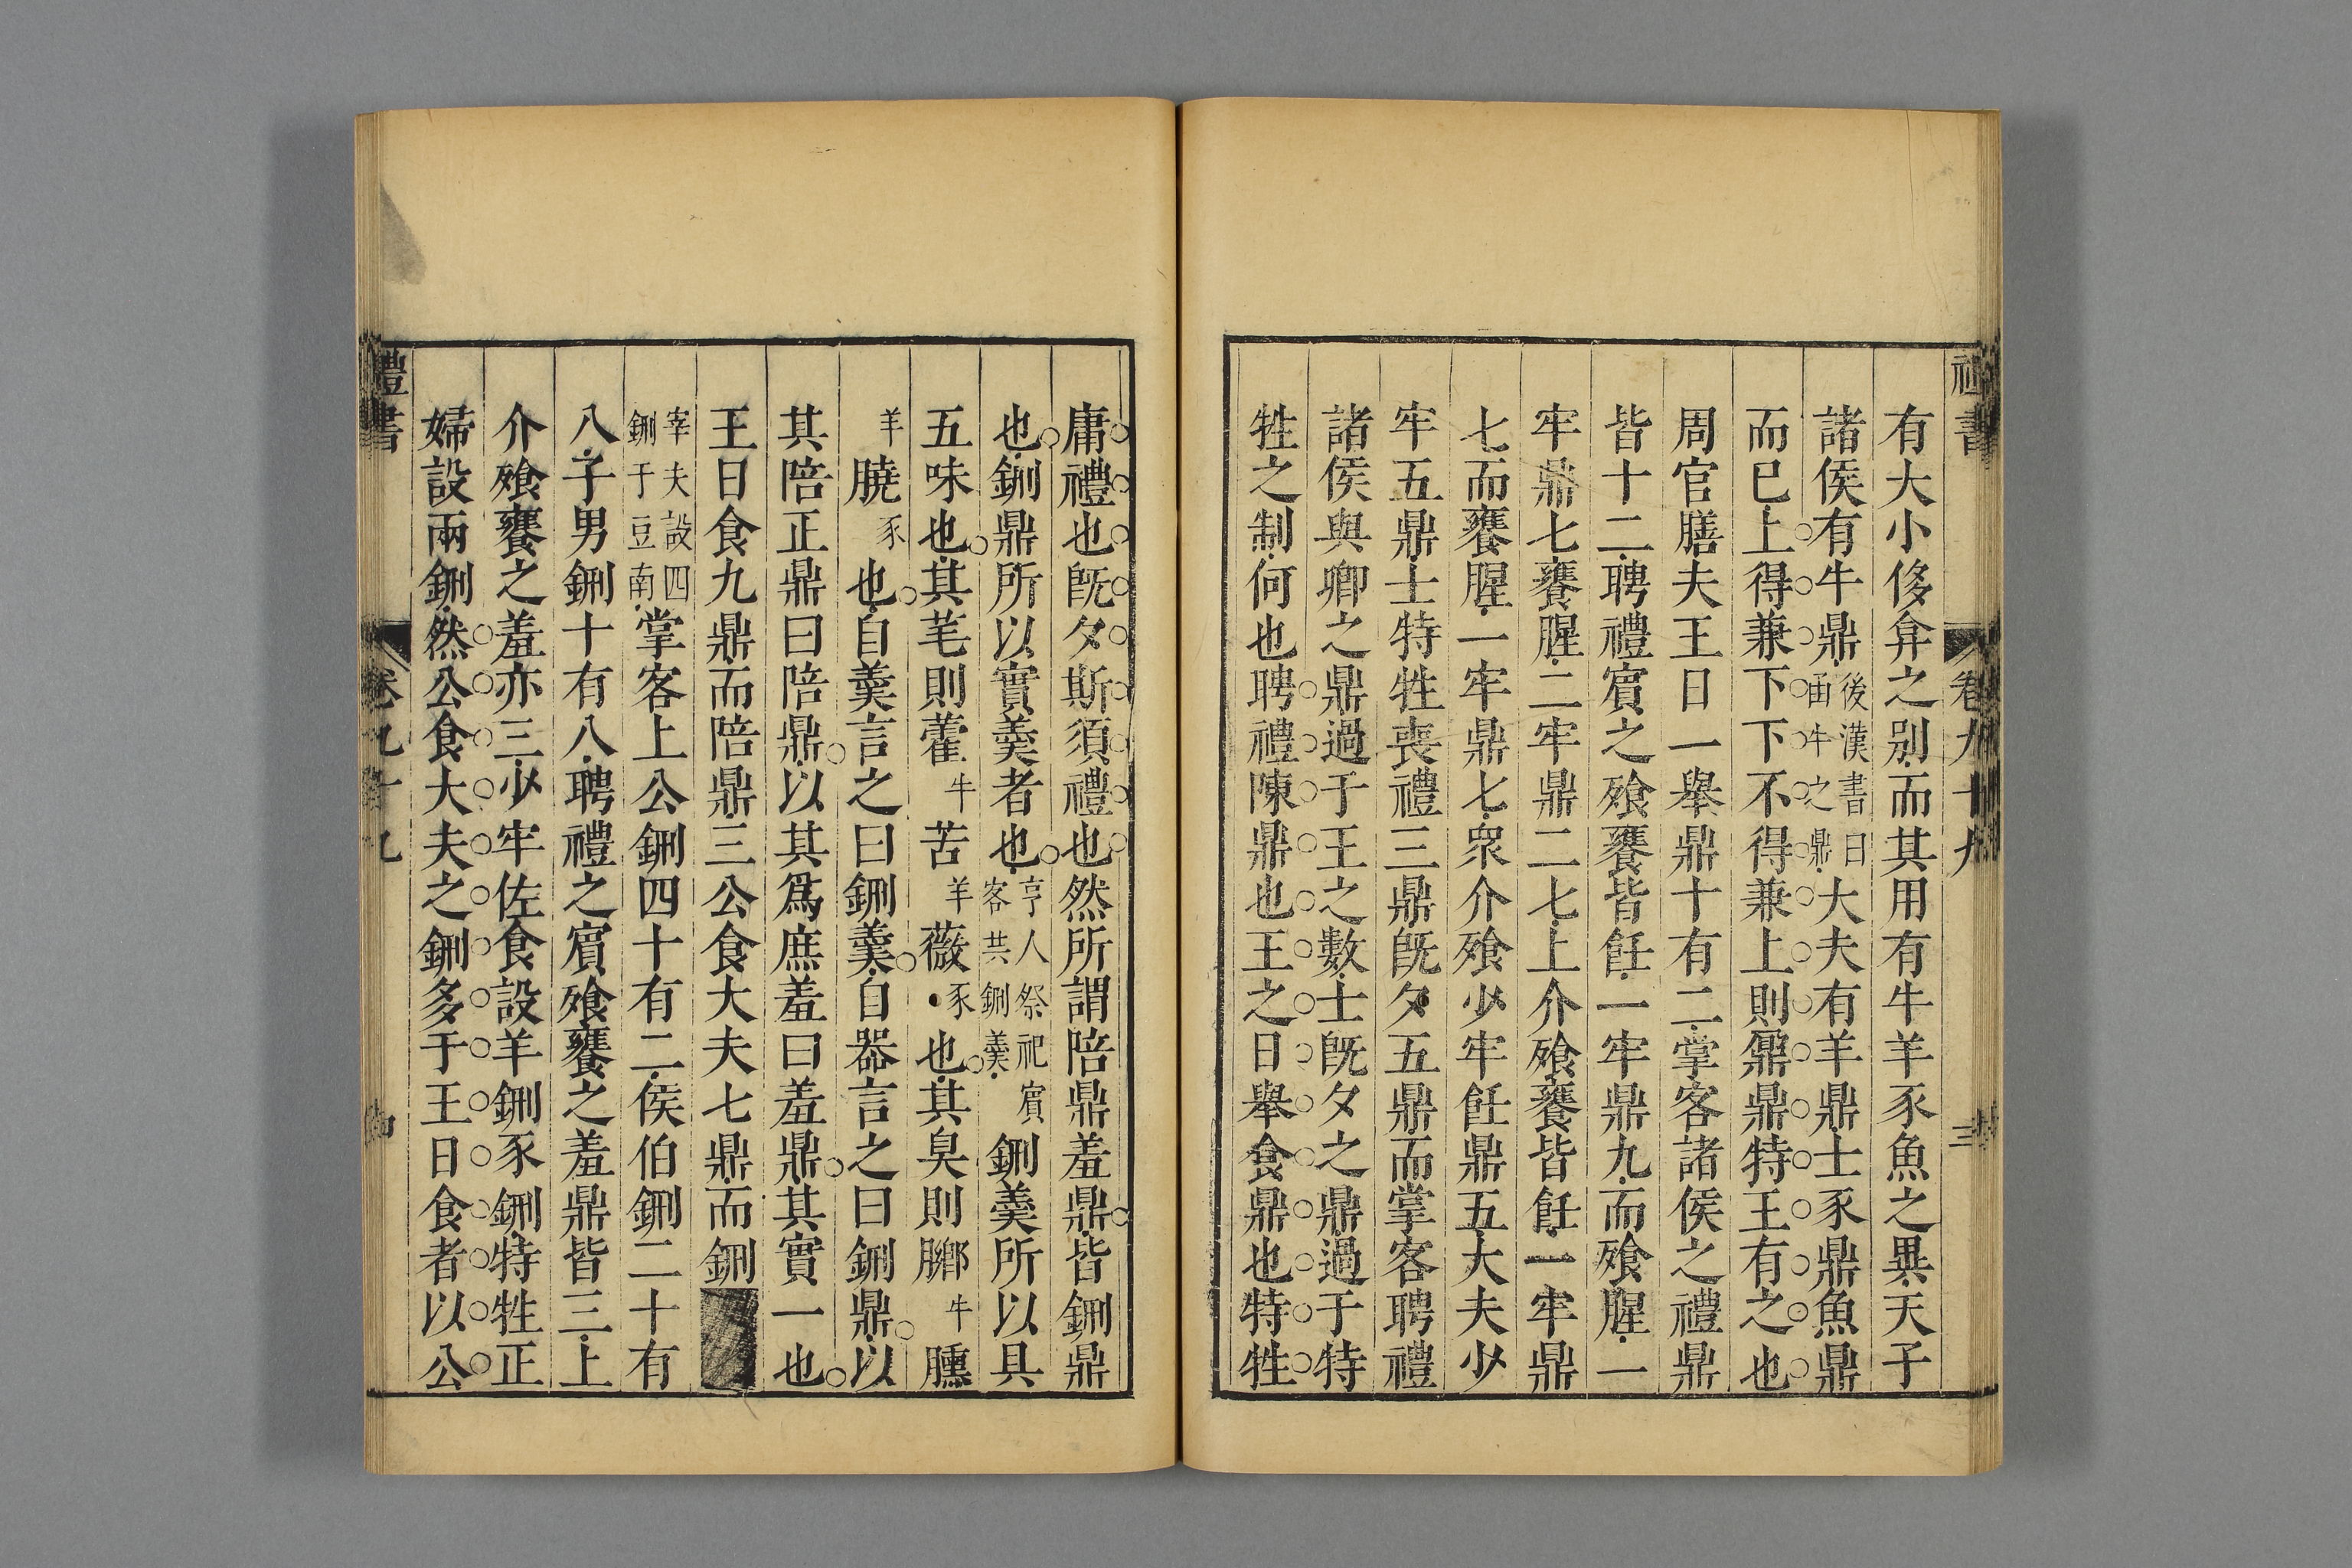 有大小侈弇之別而其用有牛羊豕魚之異天子
諸侯有牛鼎後漢書曰函牛之鼎大夫有羊鼎士豕鼎魚鼎
而巳上得兼下下不得兼上則鼐鼎特王有之也
周官膳夫王日一舉鼎十有二掌客諸侯之禮鼎
皆十二聘禮賔之飱饔皆飪一牢鼎九而飱腥一
牢鼎七饔腥二牢鼎二七上介飱饔皆飪一牢鼎
七而饔腥一牢鼎七衆介飱少牢飪鼎五大夫少
牢五鼎士特牲喪禮三鼎旣夕五鼎而掌客聘禮
諸侯與卿之鼎過于王之數士旣夕之鼎過于特
牲之制何也聘禮陳鼎也王之日舉食鼎也特牲
庸禮也旣夕斯須禮也然所謂陪鼎羞鼎皆鉶鼎
也鉶鼎所以實羹者也亨人祭祀賔客共鉶羹鉶羹所以具
五味也其芼則藿牛苦羊薇豕也其臭則膷牛臐
羊膮豕也自羹言之曰鉶羹自器言之曰鉶鼎以
其陪正鼎曰陪鼎以其爲庶羞曰羞鼎其實一也
王日食九鼎而陪鼎三公食大夫七鼎而鉶
宰夫設四鉶于豆南掌客上公鉶四十有二侯伯鉶二十有
八子男鉶十有八聘禮之賔飱饔之羞鼎皆三上
介飱饔之羞亦三少牢佐食設羊鉶豕鉶特牲正
婦設兩鉶然公食大夫之鉶多于王日食者以公
禮書
卷九十九